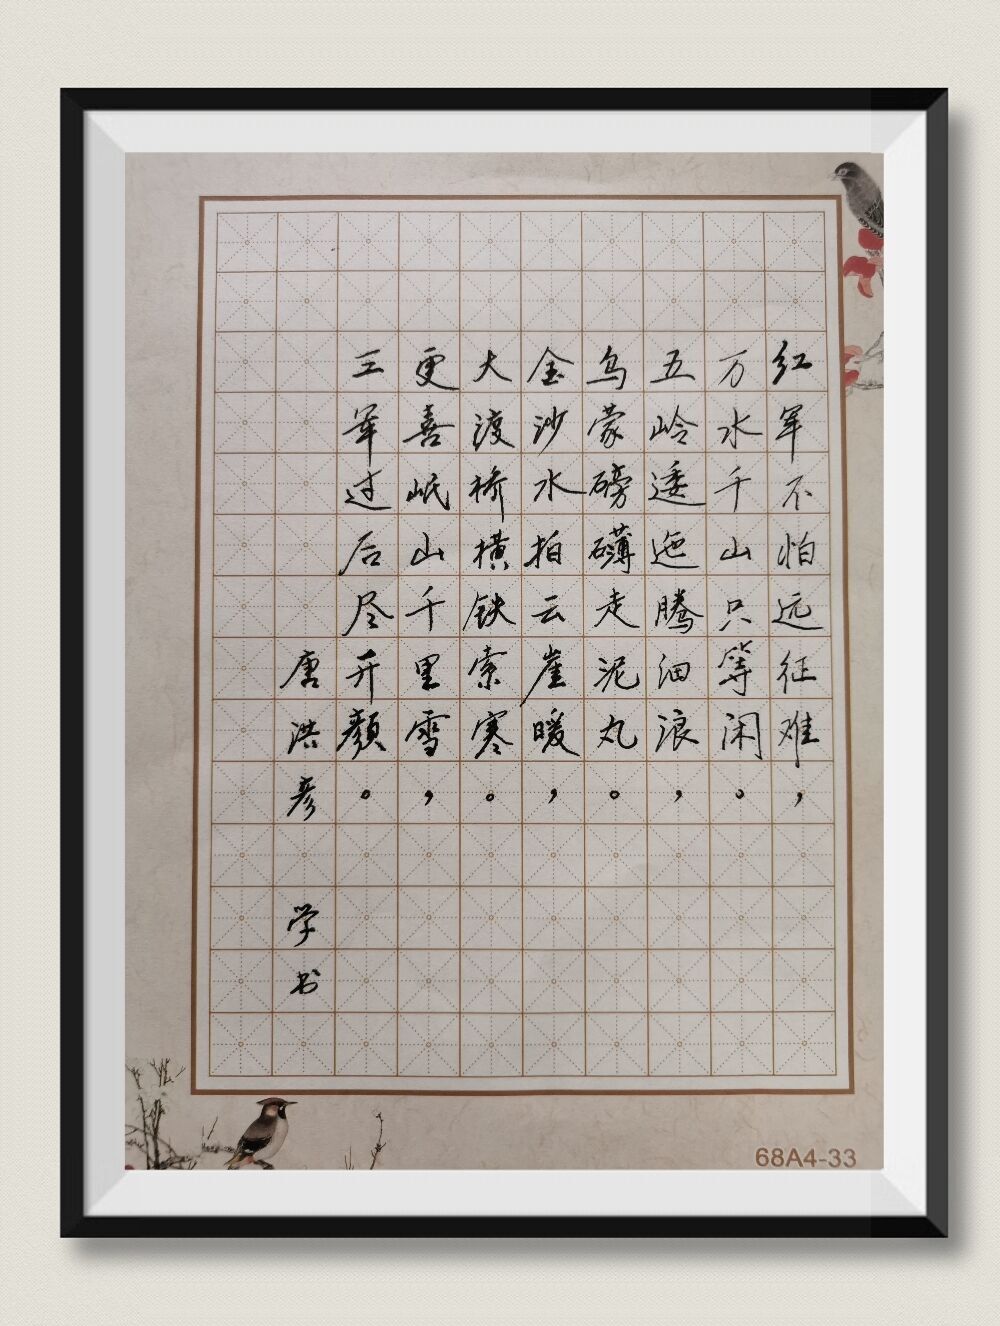 红军不怕远征难，
万水千山只等闲。
五岭逶迤腾细浪，
乌蒙磅礴走泥丸。
金沙水拍云崖暖，
大渡桥横铁索寒。
更喜岷山千里雪，
三军过后尽开颜。
唐洪彦 学书
68A4-33